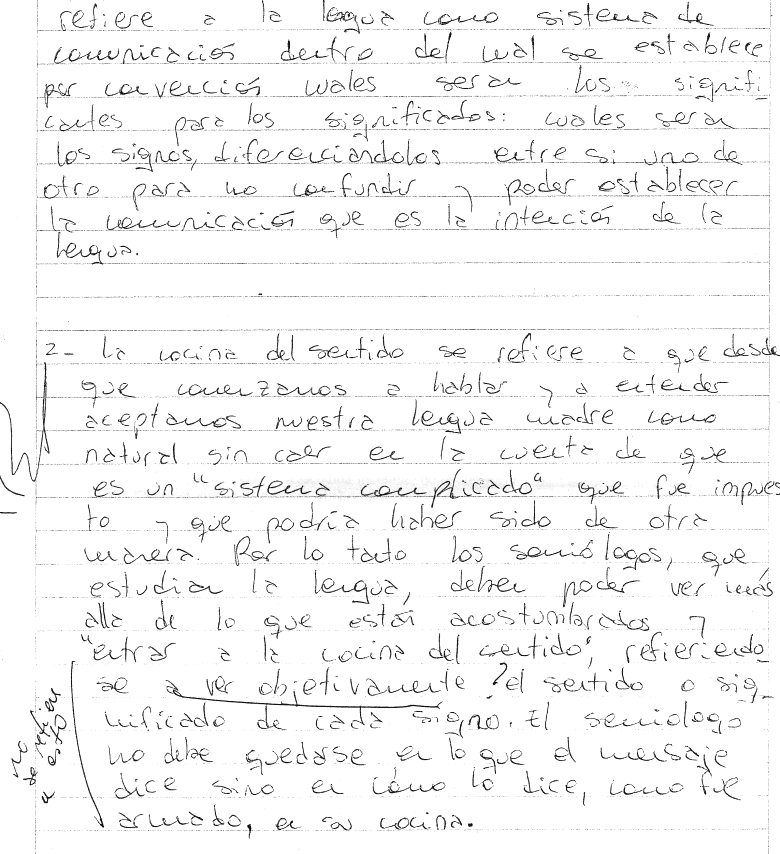 refiere a la lengua como sistema de
comunicación dentro del cual se establece
por convención cuales seran los signifi
cantes para los significados: cuales seran
los signos, diferenciándolos entre si uno de
otro para no confundir y poder establecer
la comunicación que es la intención de la
lengua.
2- La cocina del sentido se refiere a que desde
que comenzamos a hablar y a entender
aceptamos nuestra lengua madre como
natural sin caer en la cuenta de que
es un "sistema complicado" que fue impues
to y que podría haber sido de otra
manera. Por lo tanto los semiólogos, que
estudian la lengua, deben poder ver más
alla de lo que están acostumbrados y
"entrar a la cocina del sentido", refieriendo
se a ver objetivamente ? el sentido o sig-
nificado de cada signo. El semiologo
no debe quedarse en lo que el mensaje
dice sino en cómo lo dice, como fue
armado, en su cocina.
no se refiere a esto